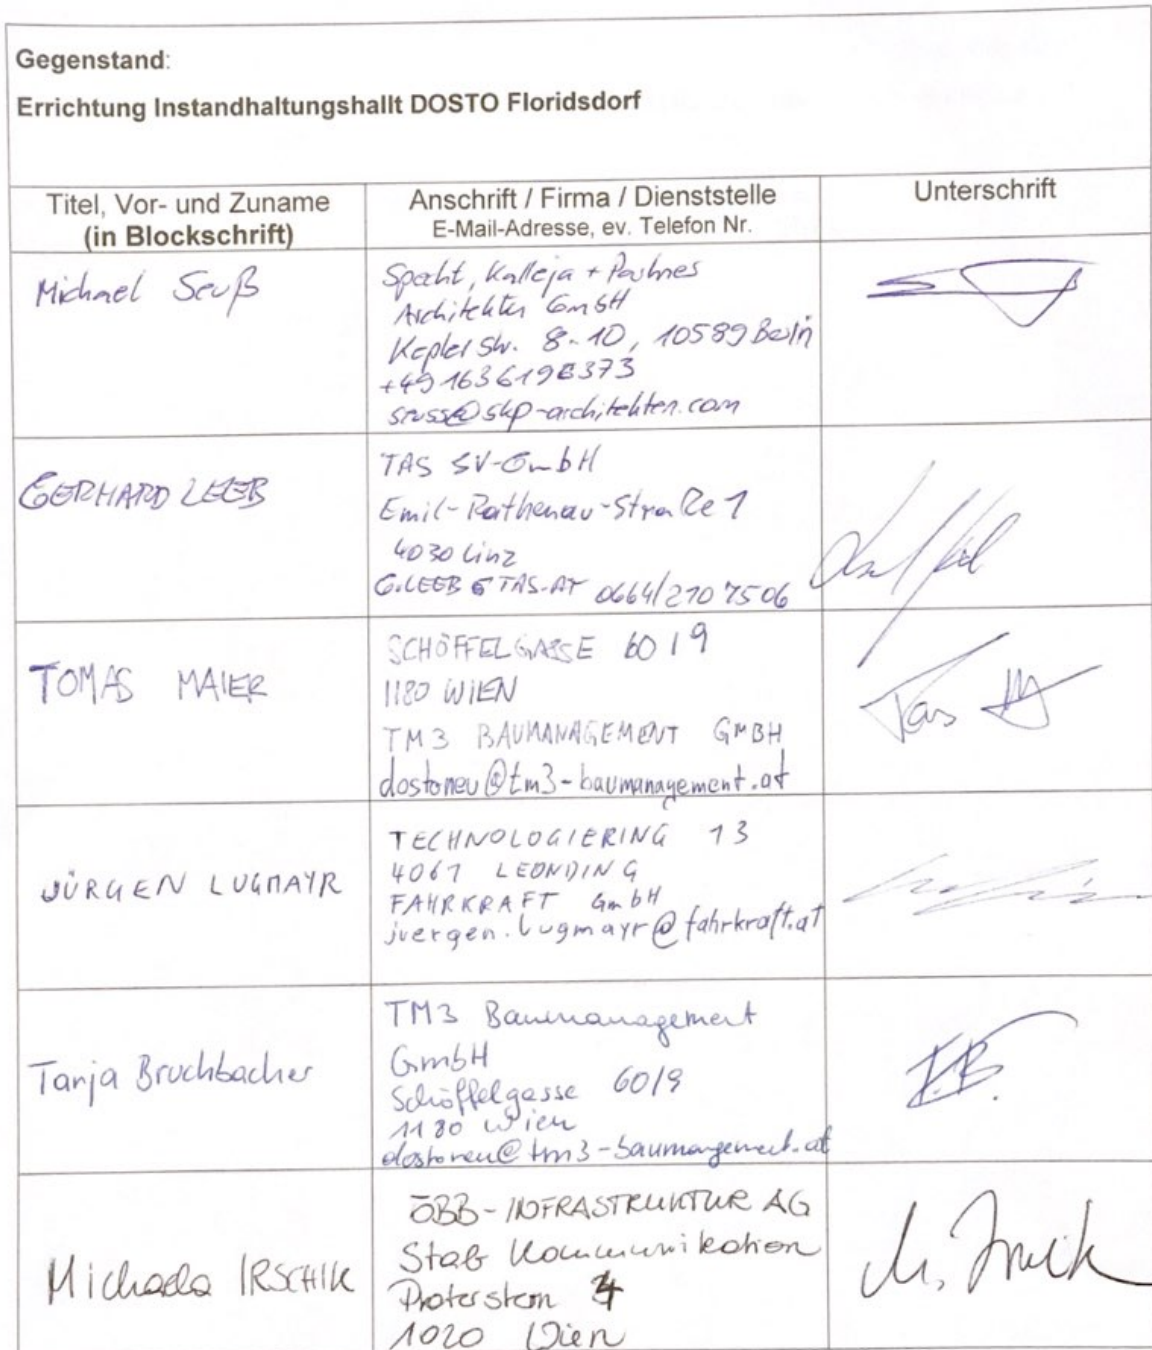 Gegenstand:
Errichtung Instandhaltungshallt DOSTO Floridsdorf
Titel, Vor- und Zuname
(in Blockschrift)
Anschrift / Firma / Dienststelle
E-Mail-Adresse, ev. Telefon Nr.
Unterschrift
Michael Seuß
Specht, Kalleja + Partner
Architekten GmbH
Kepler Str. 8-10, 10589 Berlin
+49 1636198373
seuss@skp-architekten.com
GERHARD LEEB
TAS SV-GmbH
Emil-Rathenau-Straße 1
4030 Linz
G.LEEB@TAS.AT 0664/210 7506
TOMAS MAIER
SCHÖFFELGASSE 60/9
1180 WIEN
TM3 BAUMANAGEMENT GMBH
dostoneu@tm3-baumanagement.at
JÜRGEN LUGMAYR
TECHNOLOGIERING 13
4061 LEONDING
FAHRKRAFT GmbH
juergen.lugmayr@fahrkraft.at
Tanja Bruchbacher
TM3 Baumanagement
GmbH
Schöffelgasse 60/9
1180 Wien
dostoneu@tm3-baumangement.at
T.B.
Michaela IRSCHIK
ÖBB-INFRASTRUKTUR AG
Stab Kommunikation
Praterstern 4
1020 Wien
M. Irschik